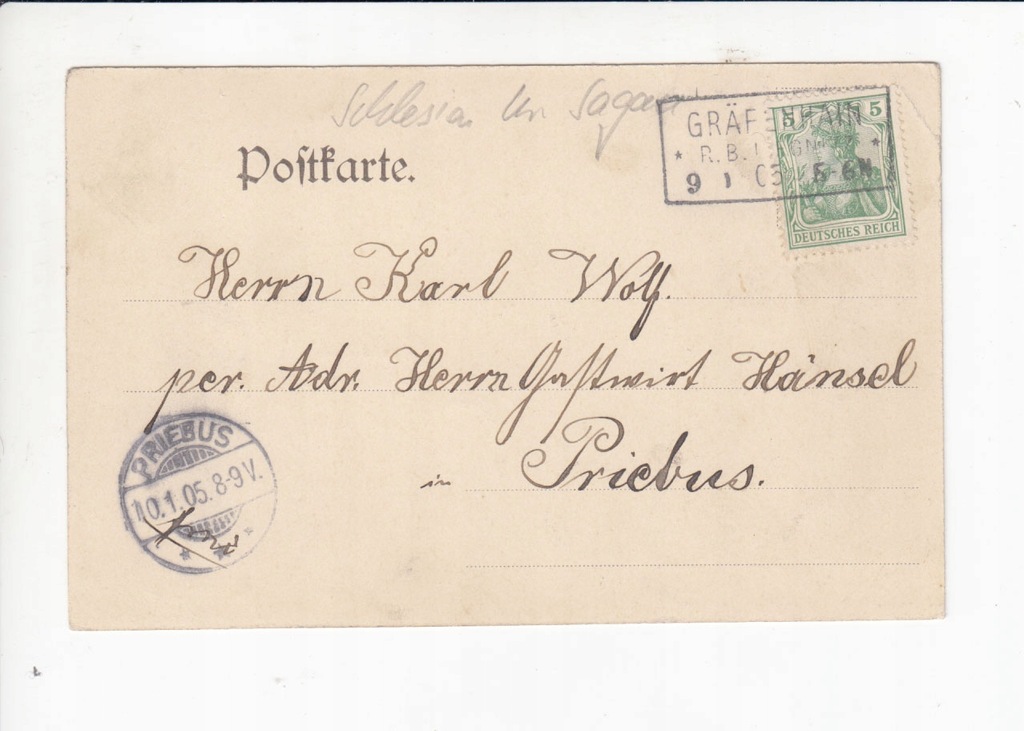 Schlesien Kr. Sagan
Postkarte.
5 5
DEUTSCHES REICH
GRÄFENHAIN
* R.B. LIEGNITZ *
9 1 05 5-6 N
Herrn Karl Wolf.
per. Adr. Herrn Gastwirt Hänsel
in Priebus.
PRIEBUS
10.1.05.8-9V.
* * *